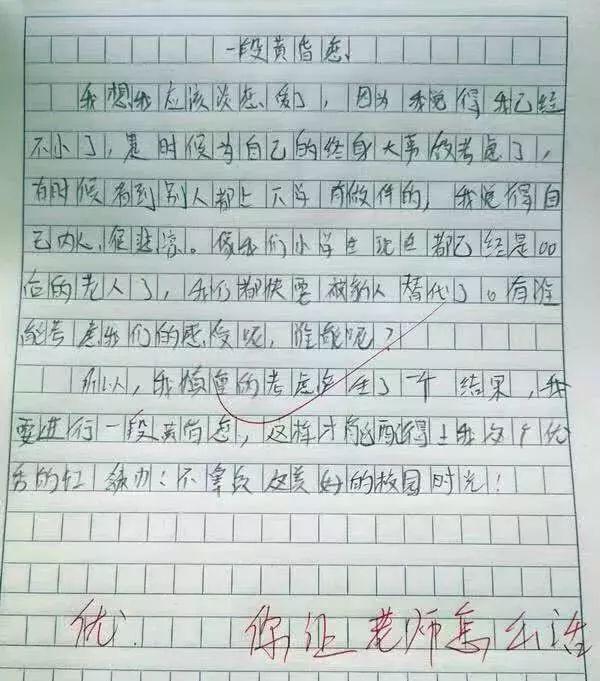 一段黄昏恋
我想我应该谈恋爱了，因为我觉得我已经
不小了，是时候为自己的终身大事做考虑了，
有时候看到别人都上下学有伴的，我觉得自
己内心很悲凉。像我们小学生现在都已经是00
后的老人了，我们都快要被新人替代了。有谁
能考虑我们的感受呢，谁能呢？
所以，我慎重的考虑产生了一个结果，我
要进行一段黄昏恋，这样才能配得上我这个优
秀的红领巾！不辜负这美好的校园时光！
优 你让老师怎么活